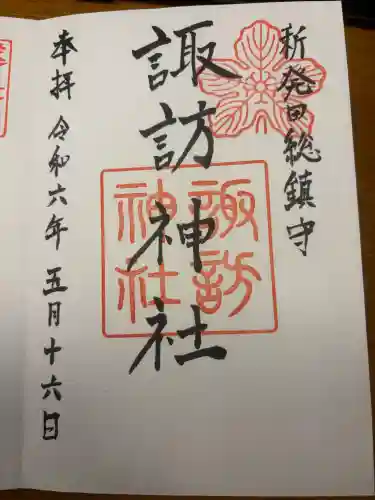 新発田総鎮守
諏訪神社
諏訪
神社
本拝 令和六年五月十六日